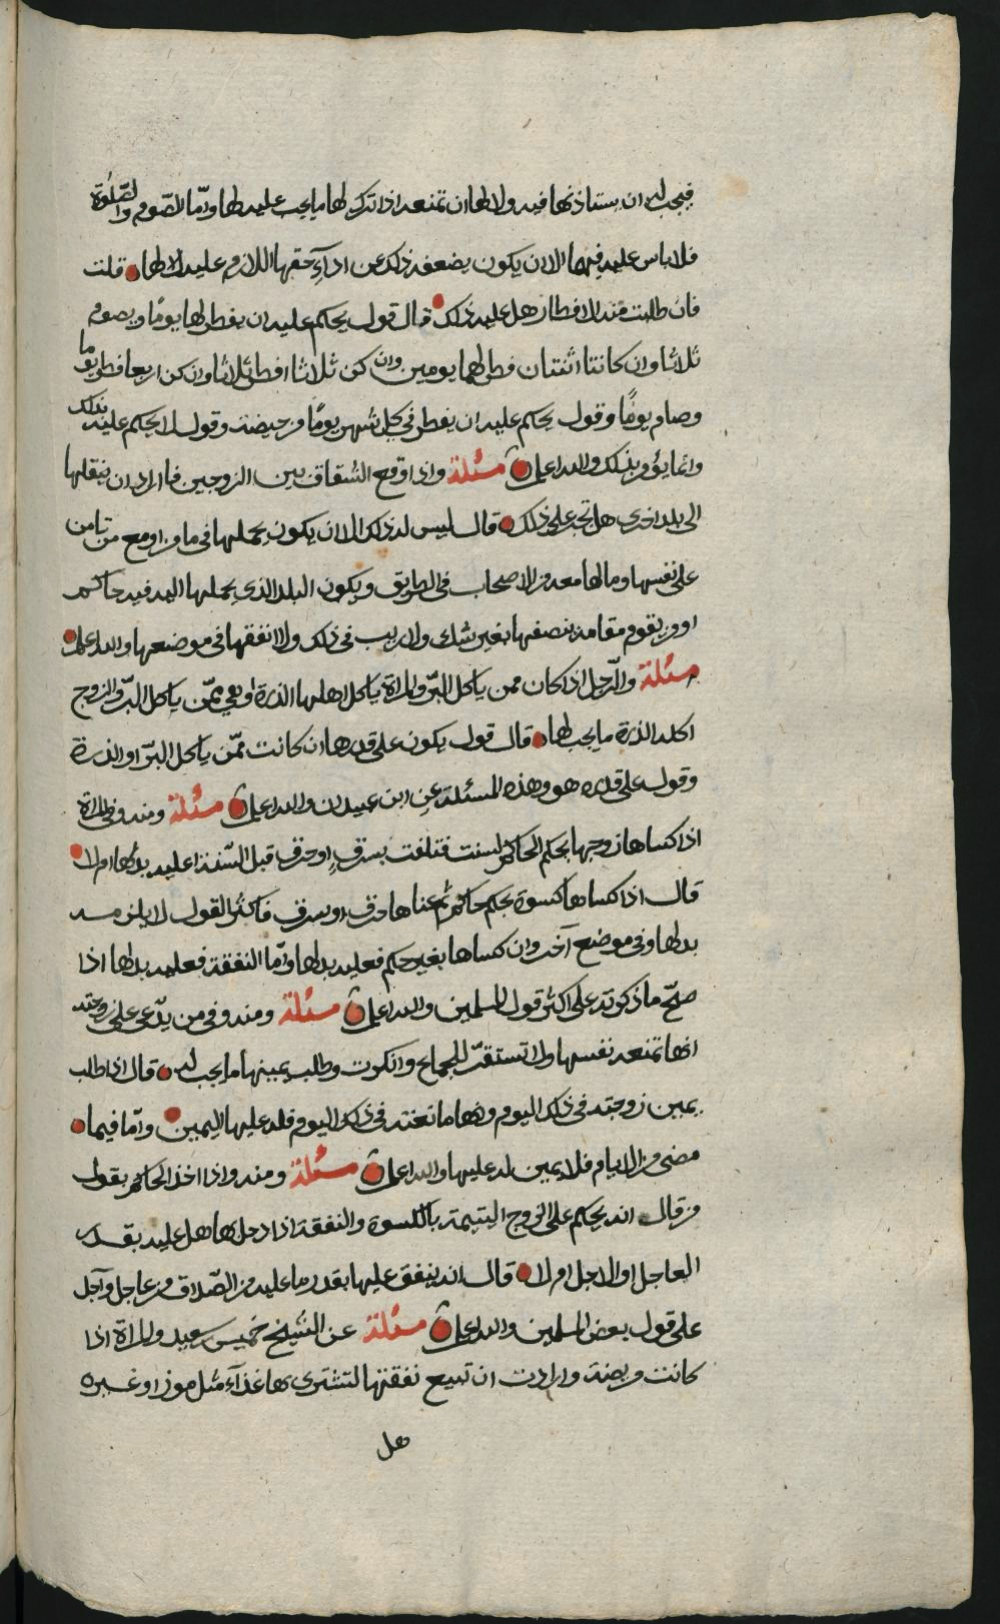 فيجب له ان يستاذنها فيه ولا لها ان تمنعه اذا ترك لها ما يجب عليه لها وامّا الصّوم والصّلوة
فلا باس عليه فيهما الا ان يكون يضعفه ذلك عن ادآء حقها اللازم عليه لها قلت
فان طلبت منه الافطار هل عليه ذلك قال قول يحكم عليه ان يفطر لها يومًا ويصوم
ثلاثا وان كانتا اثنتان فطر لهما يومين وان كن ثلاثا افطر ثلاثا وان كن اربعا فطر يومًا
وصام يومًا وقول يحكم عليه ان يفطر في كل شهر يومًا من حيضة وقول لا يحكم عليه بذلك
وانما يؤمر بذلك والله اعلم مسئلة واذا وقع الشقاق بين الزوجين فاراد ان ينقلها
الى بلد اخرى هل تجبر على ذلك قال ليس له ذلك الا ان يكون يحملها في مامن او مع من تامن
على نفسها ومالها معه من الاصحاب في الطريق ويكون البلد الذي يحملها اليه فيه حاكم
او من يقوم مقامه ينصفها بغير شك ولا ريب في ذلك والا انفقها في موضعها والله اعلم
مسئلة والرّجل اذا كان ممن ياكل البرّ والمراة ياكل اهلها الذرة او هي ممّن ياكل البرّ والزوج
اكله الذرة ما يجب لها قال قول يكون على قدرها ان كانت ممّن ياكل البرّ او الذرة
وقول على قدره هو وهذه المسئلة عن ابن عبيدان والله اعلم مسئلة ومنه وفي المراة
اذا كساها زوجها بحكم الحاكم لسنة فتلفت بسرق او حرق قبل السّنة اعليه بدلها ام لا
قال اذا كساها كسوة بحكم حاكم ثم عناها حرق او سرق فاكثر القول لا يلزمه
بدلها وفي موضع آخر وان كساها بغير حكم فعليه بدلها وامّا النفقة فعليه بدلها اذا
صحّ ما ذكرته على اكثر قول المسلمين والله اعلم مسئلة ومنه وفي من يدّعي على زوجته
انها تمنعه نفسها ولا تستقرّ للجماع وانكرت وطلب يمينها ما يجب له قال اذا طلب
يمين زوجته في ذلك اليوم وانها ما نعته في ذلك اليوم فله عليها اليمين وامّا فيما
مضى من الايام فلا يمين له عليها والله اعلم مسئلة ومنه واذا اخذ الحاكم بقول
من قال انه يحكم على الزوج اليتيمة بالكسوة والنفقة اذا دخل بها هل عليه بقدر
العاجل او الاجل ام لا قال انه ينفق عليها بقدر ما عليه من الصّداق من عاجل وآجل
على قول بعض المسلمين والله اعلم مسئلة عن الشيخ خميس بن سعيد والمراة اذا
كانت مريضة وارادت ان تبيع نفقتها لتشتري بها غذآء مثل موز او غيره
هل